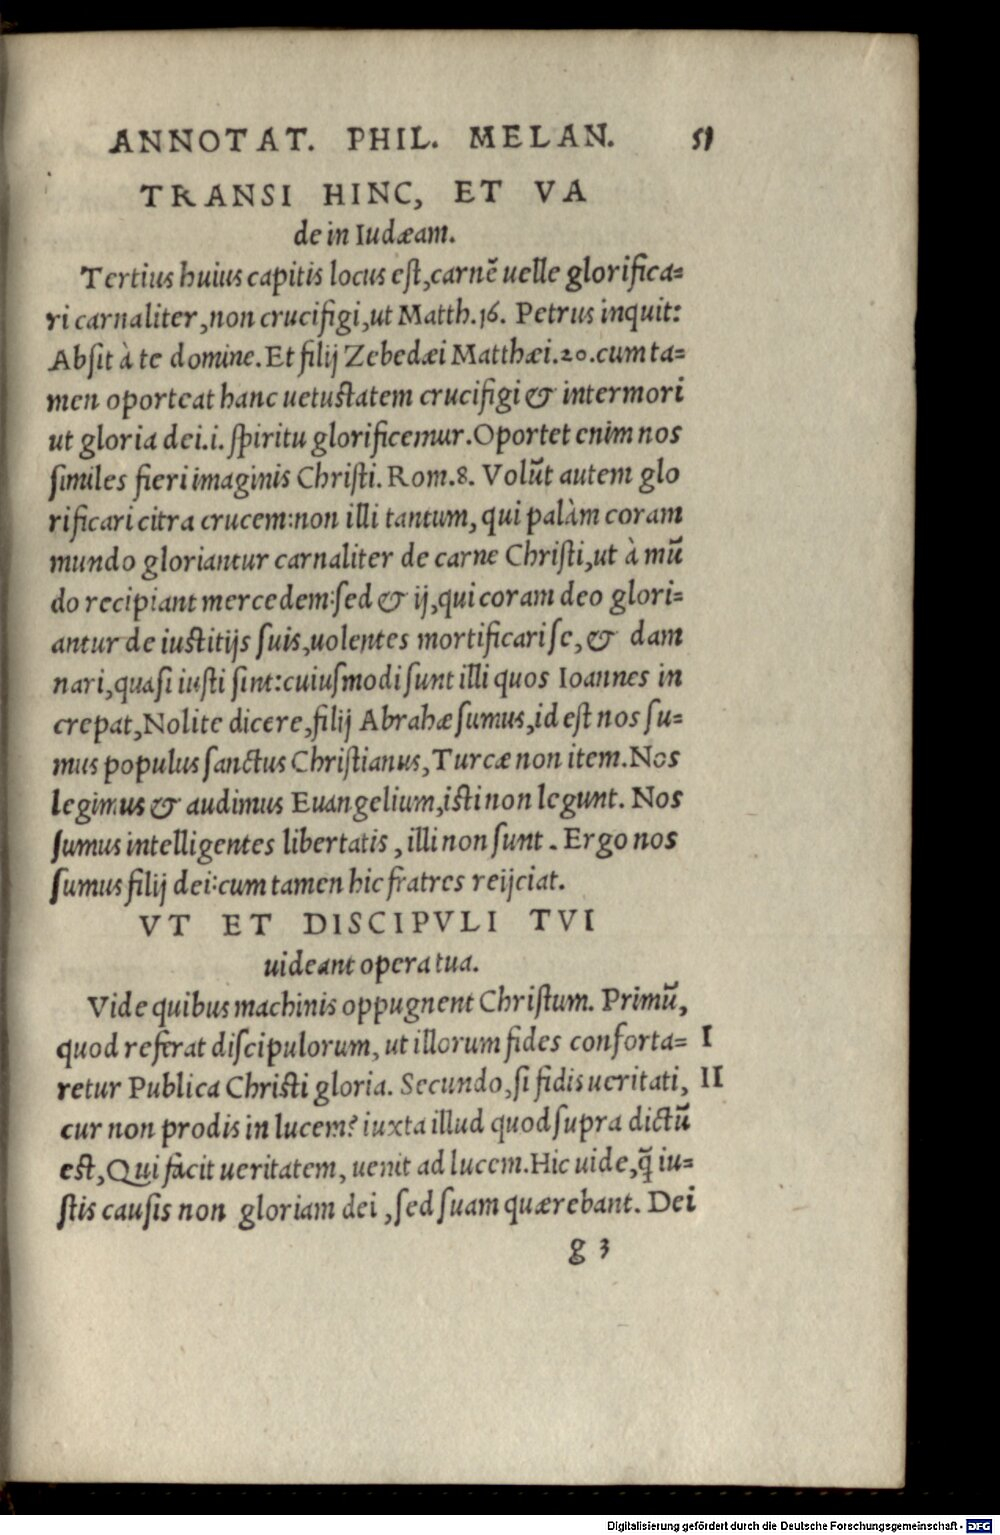 ANNOTAT. PHIL. MELAN. 51
TRANSI HINC, ET VA
de in Iudæam.
Tertius huius capitis locus est, carnē uelle glorifica=
ri carnaliter, non crucifigi, ut Matth. 16. Petrus inquit:
Absit à te domine. Et filij Zebedæi Matthæi. 20. cum ta=
men oporteat hanc uetustatem crucifigi & intermori
ut gloria dei .i. spiritu glorificemur. Oportet enim nos
similes fieri imaginis Christi. Rom. 8. Volūt autem glo
rificari citra crucem: non illi tantum, qui palàm coram
mundo gloriantur carnaliter de carne Christi, ut à mū
do recipiant mercedem: sed & ij, qui coram deo glori=
antur de iustitijs suis, uolentes mortificari se, & dam
nari, quasi iusti sint: cuiusmodi sunt illi quos Ioannes in
crepat, Nolite dicere, filij Abrahæ sumus, id est nos su=
mus populus sanctus Christianus, Turcæ non item. Nos
legimus & audimus Euangelium, isti non legunt. Nos
sumus intelligentes libertatis, illi non sunt. Ergo nos
sumus filij dei: cum tamen hic fratres reijciat.
VT ET DISCIPVLI TVI
uideant opera tua.
Vide quibus machinis oppugnent Christum. Primū,
quod referat discipulorum, ut illorum fides conforta= I
retur Publica Christi gloria. Secundo, si fidis ueritati, II
cur non prodis in lucem? iuxta illud quod supra dictū
est, Qui facit ueritatem, uenit ad lucem. Hic uide, q̄ iu=
stis causis non gloriam dei, sed suam quærebant. Dei
g 3
Digitalisierung gefördert durch die Deutsche Forschungsgemeinschaft - DFG